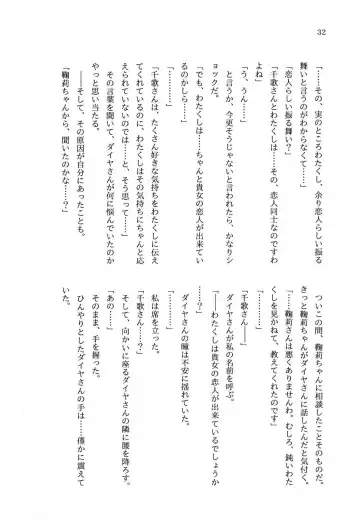 32
「……その、実のところわたくし、余り恋人らしい振る
舞いと言うのがわからなくて……」
「恋人らしい振る舞い？」
「千歌さんとわたくしは……その、恋人同士なのですわ
よね」
「う、うん……」
と言うか、今更そうじゃないと言われたら、かなりシ
ョックだ。
「でも、わたくしは……ちゃんと貴女の恋人が出来てい
るのかしら……」
「………」
「千歌さんは、たくさん好きな気持ちをわたくしに伝え
てくれているのに、わたくしはその気持ちにちゃんと応
えられていないのでは……と、そう思って……」
その言葉を聞いて、ダイヤさんが何に悩んでいたのか
やっと思い当たる。
そして、その原因が自分にあったことも。
「鞠莉ちゃんから、聞いたのかな……？」
つい この間、鞠莉ちゃんに相談したことそのものだ。
きっと鞠莉ちゃんがダイヤさんに話したんだと気付く。
「……鞠莉さんは悪くありませんわ。むしろ、鈍いわた
くしを見かねて、教えてくれたのです」
「………」
「千歌さん――」
ダイヤさんが私の名前を呼ぶ。
「――わたくしは貴女の恋人が出来ているでしょうか
……？」
ダイヤさんの瞳は不安に揺れていた。
「………」
私は席を立った。
「千歌さん……？」
そして、向かいに座るダイヤさんの隣に腰を降ろす。
「あの……」
そのまま、手を握った。
ひんやりとしたダイヤさんの手は……僅かに震えて
いた。